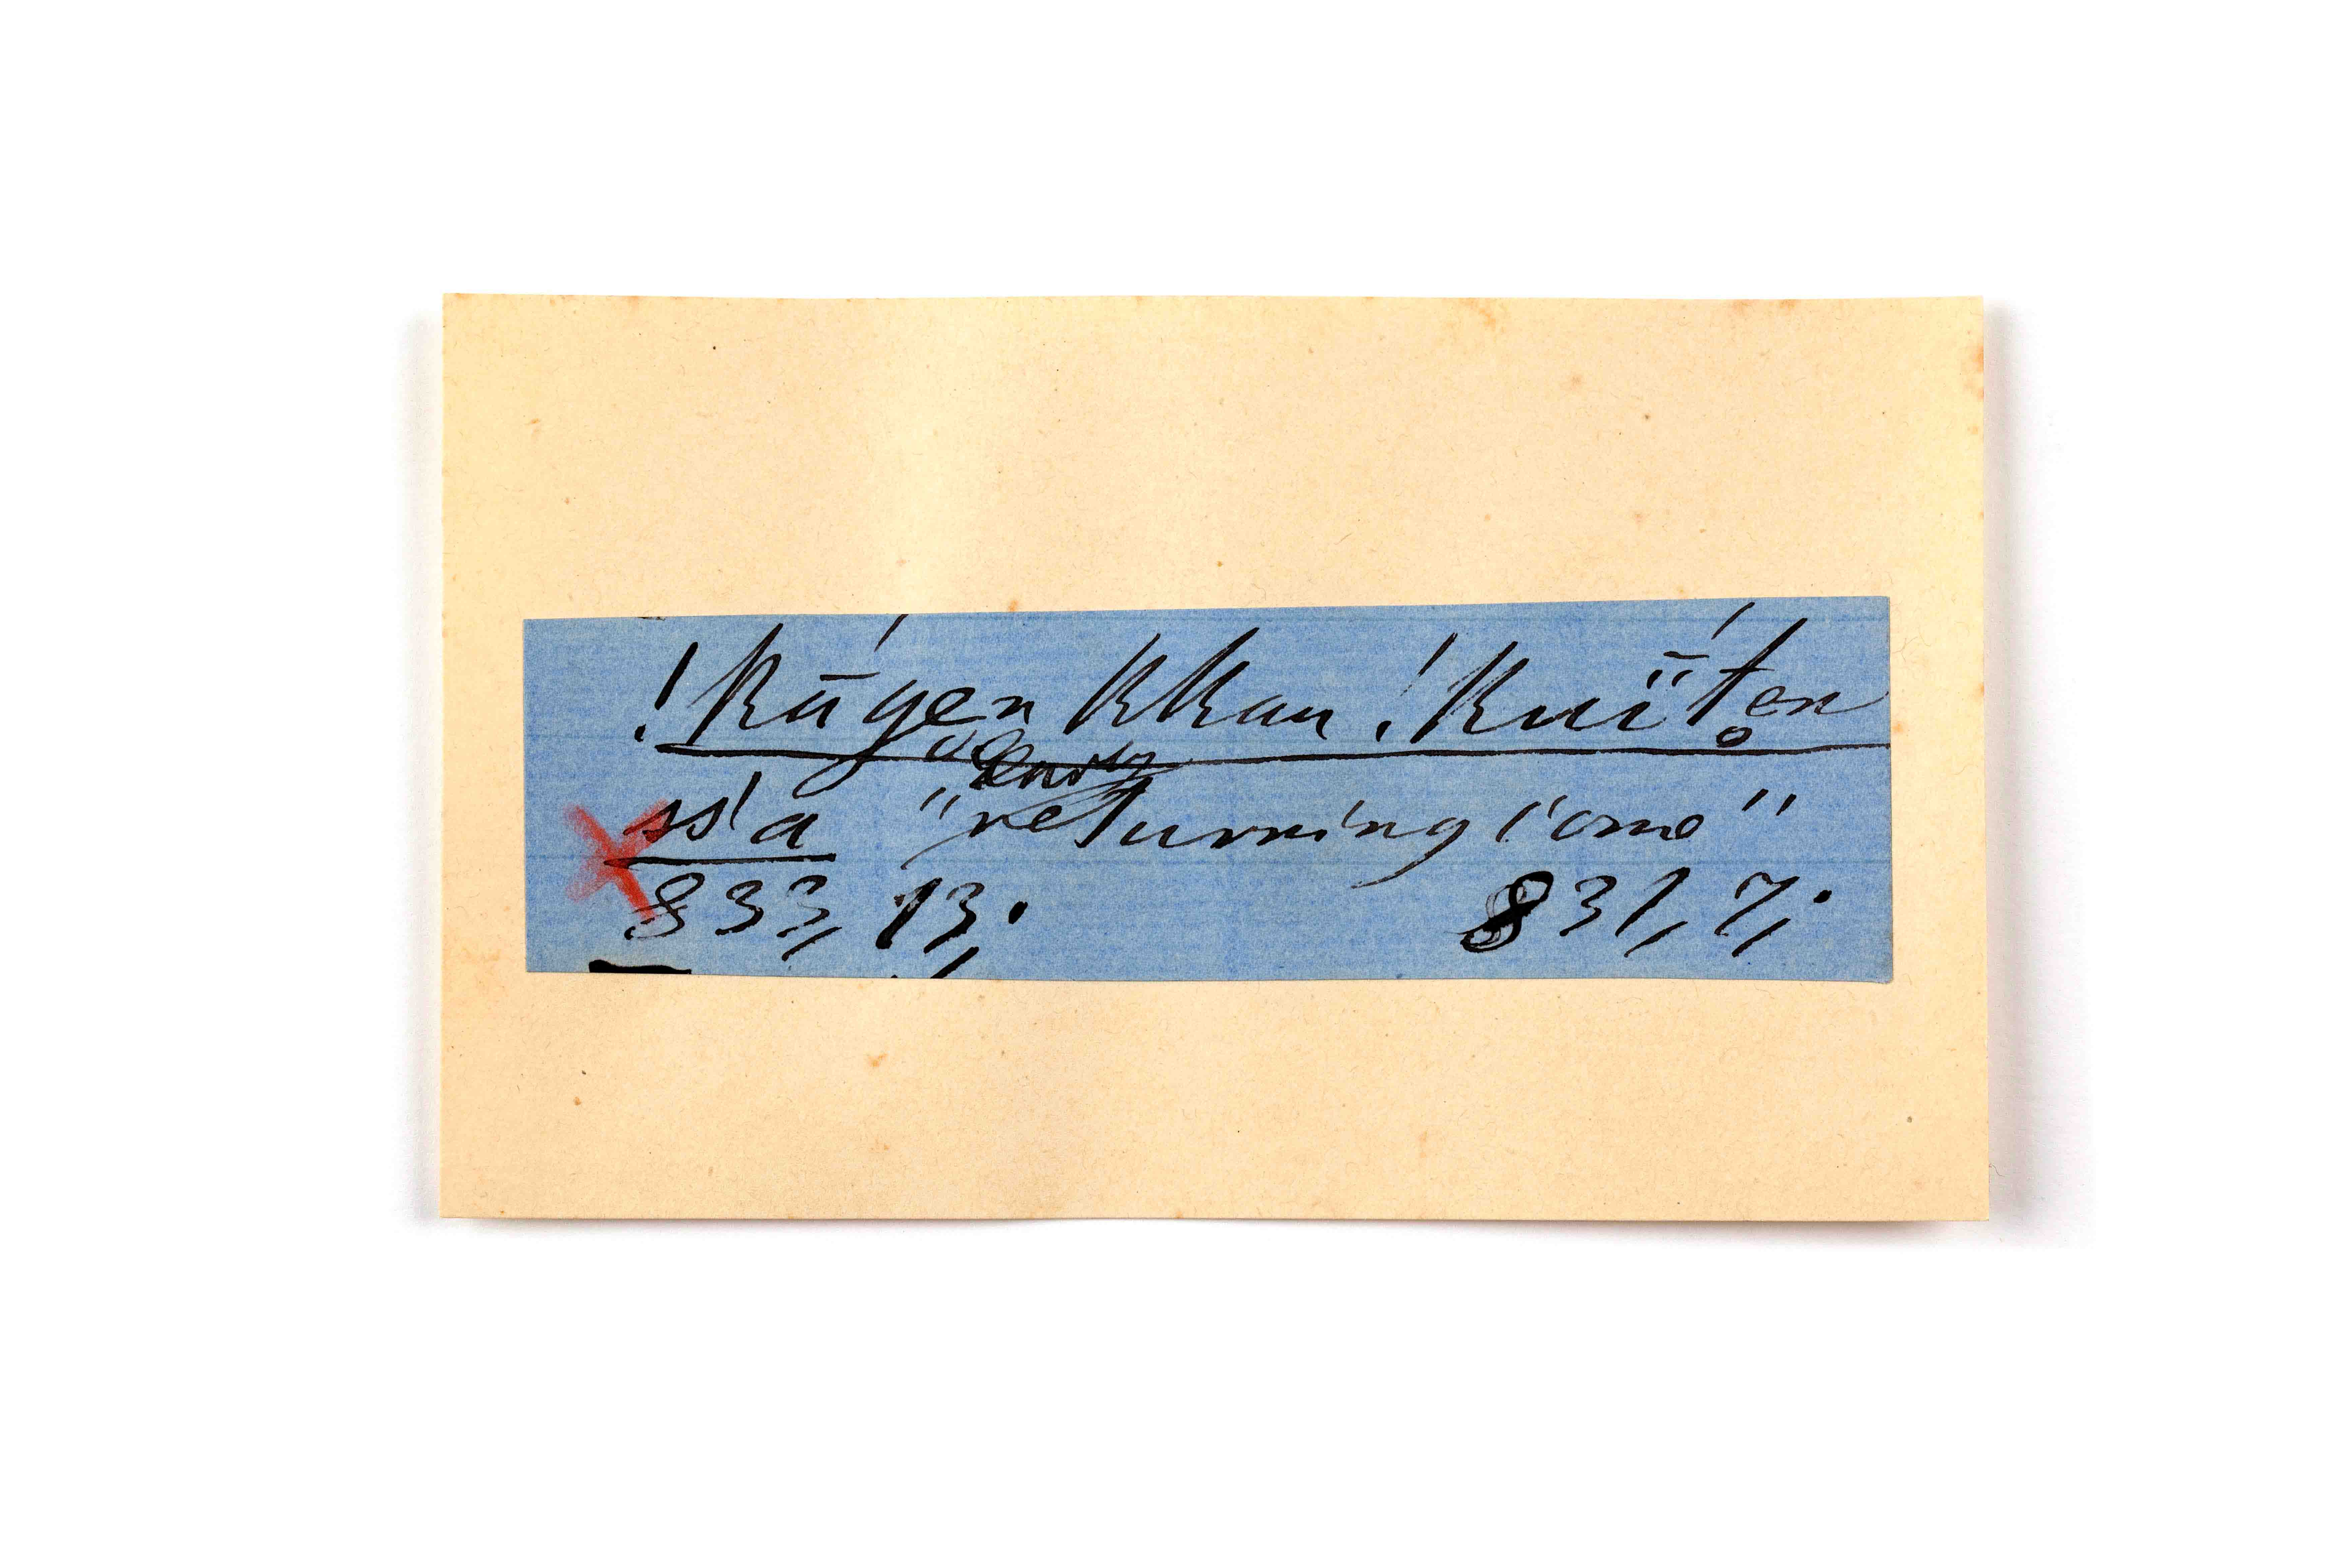 !kúgen kkau !kuïten̥
ss'a "returning ('ome"
833, 13; 831, 7;